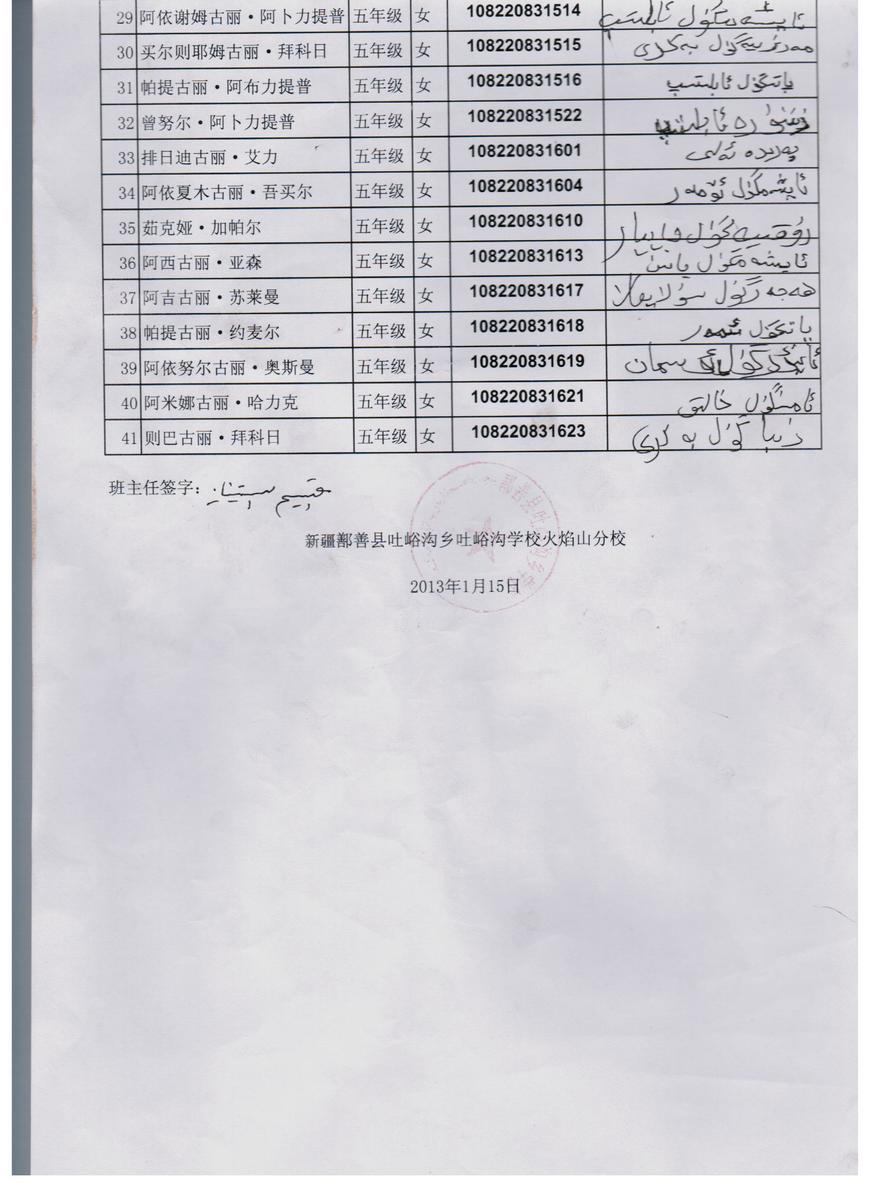 29 阿依谢姆古丽·阿卜力提普 五年级 女 108220831514
30 买尔则耶姆古丽·拜科日 五年级 女 108220831515 مەرزىيەگۈل بەكرى
31 帕提古丽·阿布力提普 五年级 女 108220831516 پاتىگۈل ئابلىتىپ
32 曾努尔·阿卜力提普 五年级 女 108220831522
33 排日迪古丽·艾力 五年级 女 108220831601 پەرىدە ئەلى
34 阿依夏木古丽·吾买尔 五年级 女 108220831604 ئايشەمگۈل ئۆمەر
35 茹克娅·加帕尔 五年级 女 108220831610
36 阿西古丽·亚森 五年级 女 108220831613
37 阿吉古丽·苏莱曼 五年级 女 108220831617
38 帕提古丽·约麦尔 五年级 女 108220831618
39 阿依努尔古丽·奥斯曼 五年级 女 108220831619
40 阿米娜古丽·哈力克 五年级 女 108220831621
41 则巴古丽·拜科日 五年级 女 108220831623 زىبا گۈل بەكرى
班主任签字：
新疆鄯善县吐峪沟乡吐峪沟学校火焰山分校
2013年1月15日